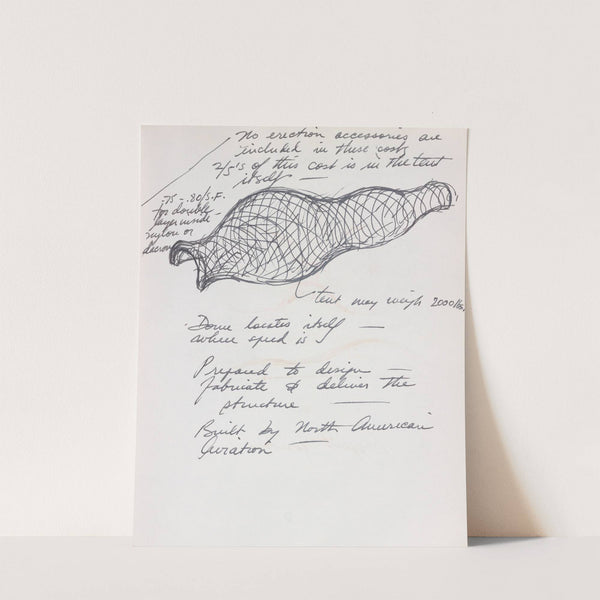 No erection accessories are
included in these costs
2/5's of this cost is in the tent
itself —
.75 - .80/S.F.
for double
layer inside
nylon or
dacron
tent may weigh 2000 lbs.
Dome locates itself —
where speed is
Prepared to design —
fabricate & deliver the
structure —
Built by North American
Aviation